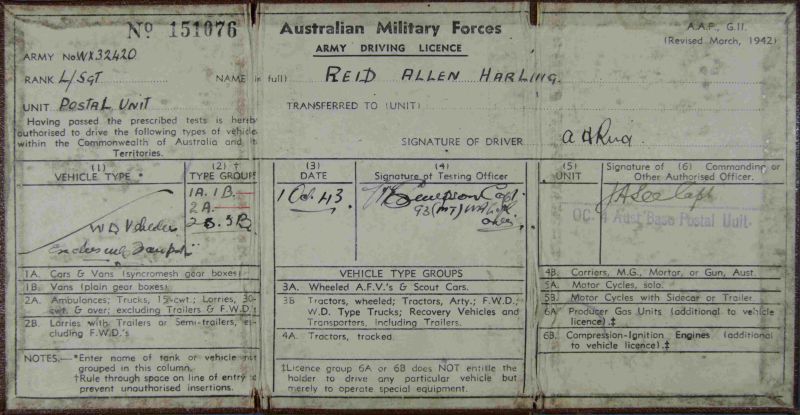 No 151076
Australian Military Forces
ARMY DRIVING LICENCE
A.A.F., G.11.
(Revised March, 1942)
ARMY No WX32420
RANK L/SGT
NAME (in full) REID ALLEN HARLING
UNIT POSTAL UNIT
TRANSFERRED TO (UNIT)
Having passed the prescribed tests is hereb
authorised to drive the following types of vehicle
within the Commonwealth of Australia and it
Territories.
SIGNATURE OF DRIVER A H Reid
(1)
VEHICLE TYPE *
(2) †
TYPE GROUP
(3)
DATE
(4)
Signature of Testing Officer
(5)
UNIT
Signature of (6) Commanding or
Other Authorised Officer.
1A. 1B.
2A.
2B. 3B
W D Vehicles
1 Oct 43
Capt
J A See Capt
OC. 4 Aust Base Postal Unit.
1A. Cars & Vans (syncromesh gear boxes)
1B. Vans (plain gear boxes)
2A. Ambulances; Trucks, 15-cwt.; Lorries, 30-
cwt. & over; excluding Trailers & F.W.D's
2B. Lorries with Trailers or Semi-trailers, ex-
cluding F.W.D.'s
NOTES.—*Enter name of tank or vehicle not
grouped in this column.
†Rule through space on line of entry to
prevent unauthorised insertions.
VEHICLE TYPE GROUPS
3A. Wheeled A.F.V.'s & Scout Cars.
3B Tractors, wheeled; Tractors, Arty.; F.W.D.;
W.D. Type Trucks; Recovery Vehicles and
Transporters, including Trailers.
4A. Tractors, tracked.
‡Licence group 6A or 6B does NOT entitle the
holder to drive any particular vehicle but
merely to operate special equipment.
4B. Carriers, M.G., Mortar, or Gun, Aust.
5A. Motor Cycles, solo.
5B. Motor Cycles with Sidecar or Trailer.
6A Producer Gas Units (additional to vehicle
licence).‡
6B. Compression-Ignition Engines (additional
to vehicle licence).‡